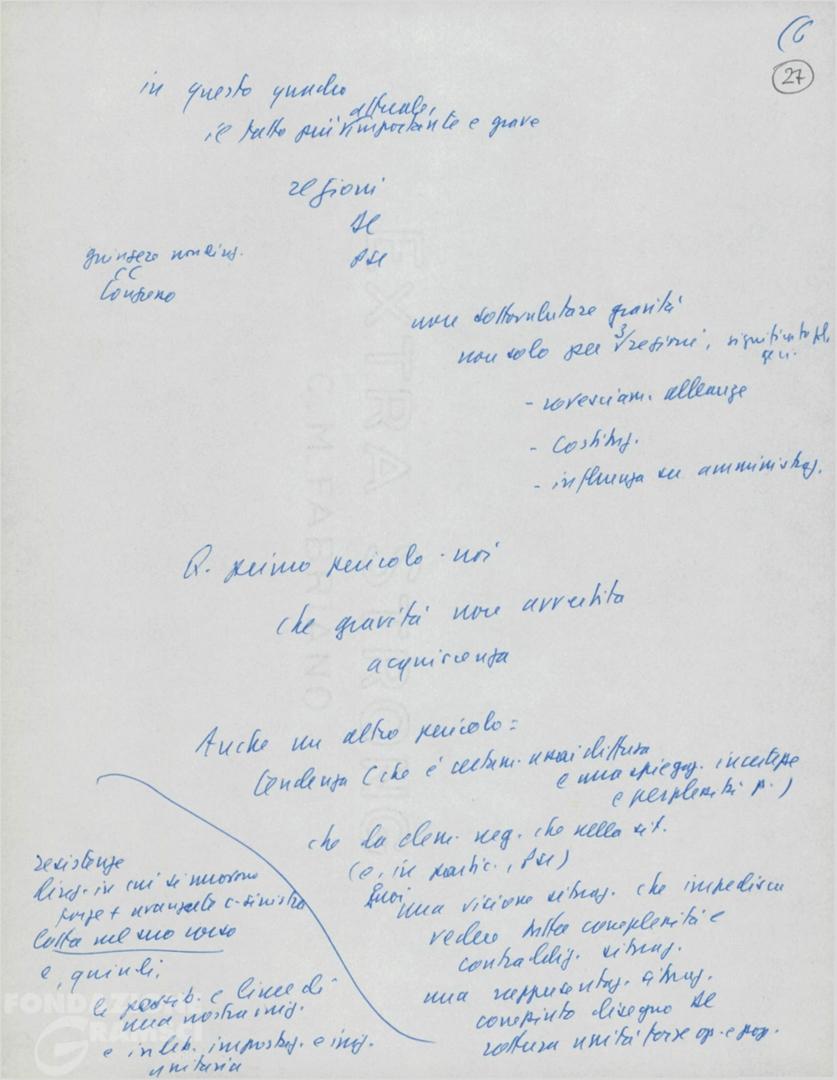 (6
27
in questo quadro
attuale,
è tutto più importante e grave
regioni
DC
PSI
CC
Congresso
non sottovalutare gravità
non solo per 3 regioni, significato
gen.
- rovesciam. alleanze
- Costituz.
- influenza su amministraz.
Q. primo pericolo - noi
che gravità non avvertita
acquiescenza
Anche un altro pericolo:
tendenza (che è certam. assai diffusa
e una spiegaz. incertezze
e perplessità p.)
che da elem. neg. che nella sit.
(e, in partic., PSI)
una visione situaz. che impedisca
vedere tutta complessità e
contraddiz. situaz.
una rappresentaz. situaz.
compiuto disegno DC
rottura unità forze op. e pop.
resistenze
direz. in cui si muovono
forze + avanzate c-sinistra
lotta nel suo corso
e, quindi,
le possib. e linee di
una nostra iniz.
e impostaz. e iniz.
unitaria
FONDAZIONE
GRAMSCI
EXTRA STRONG
C.M.FABRIANO